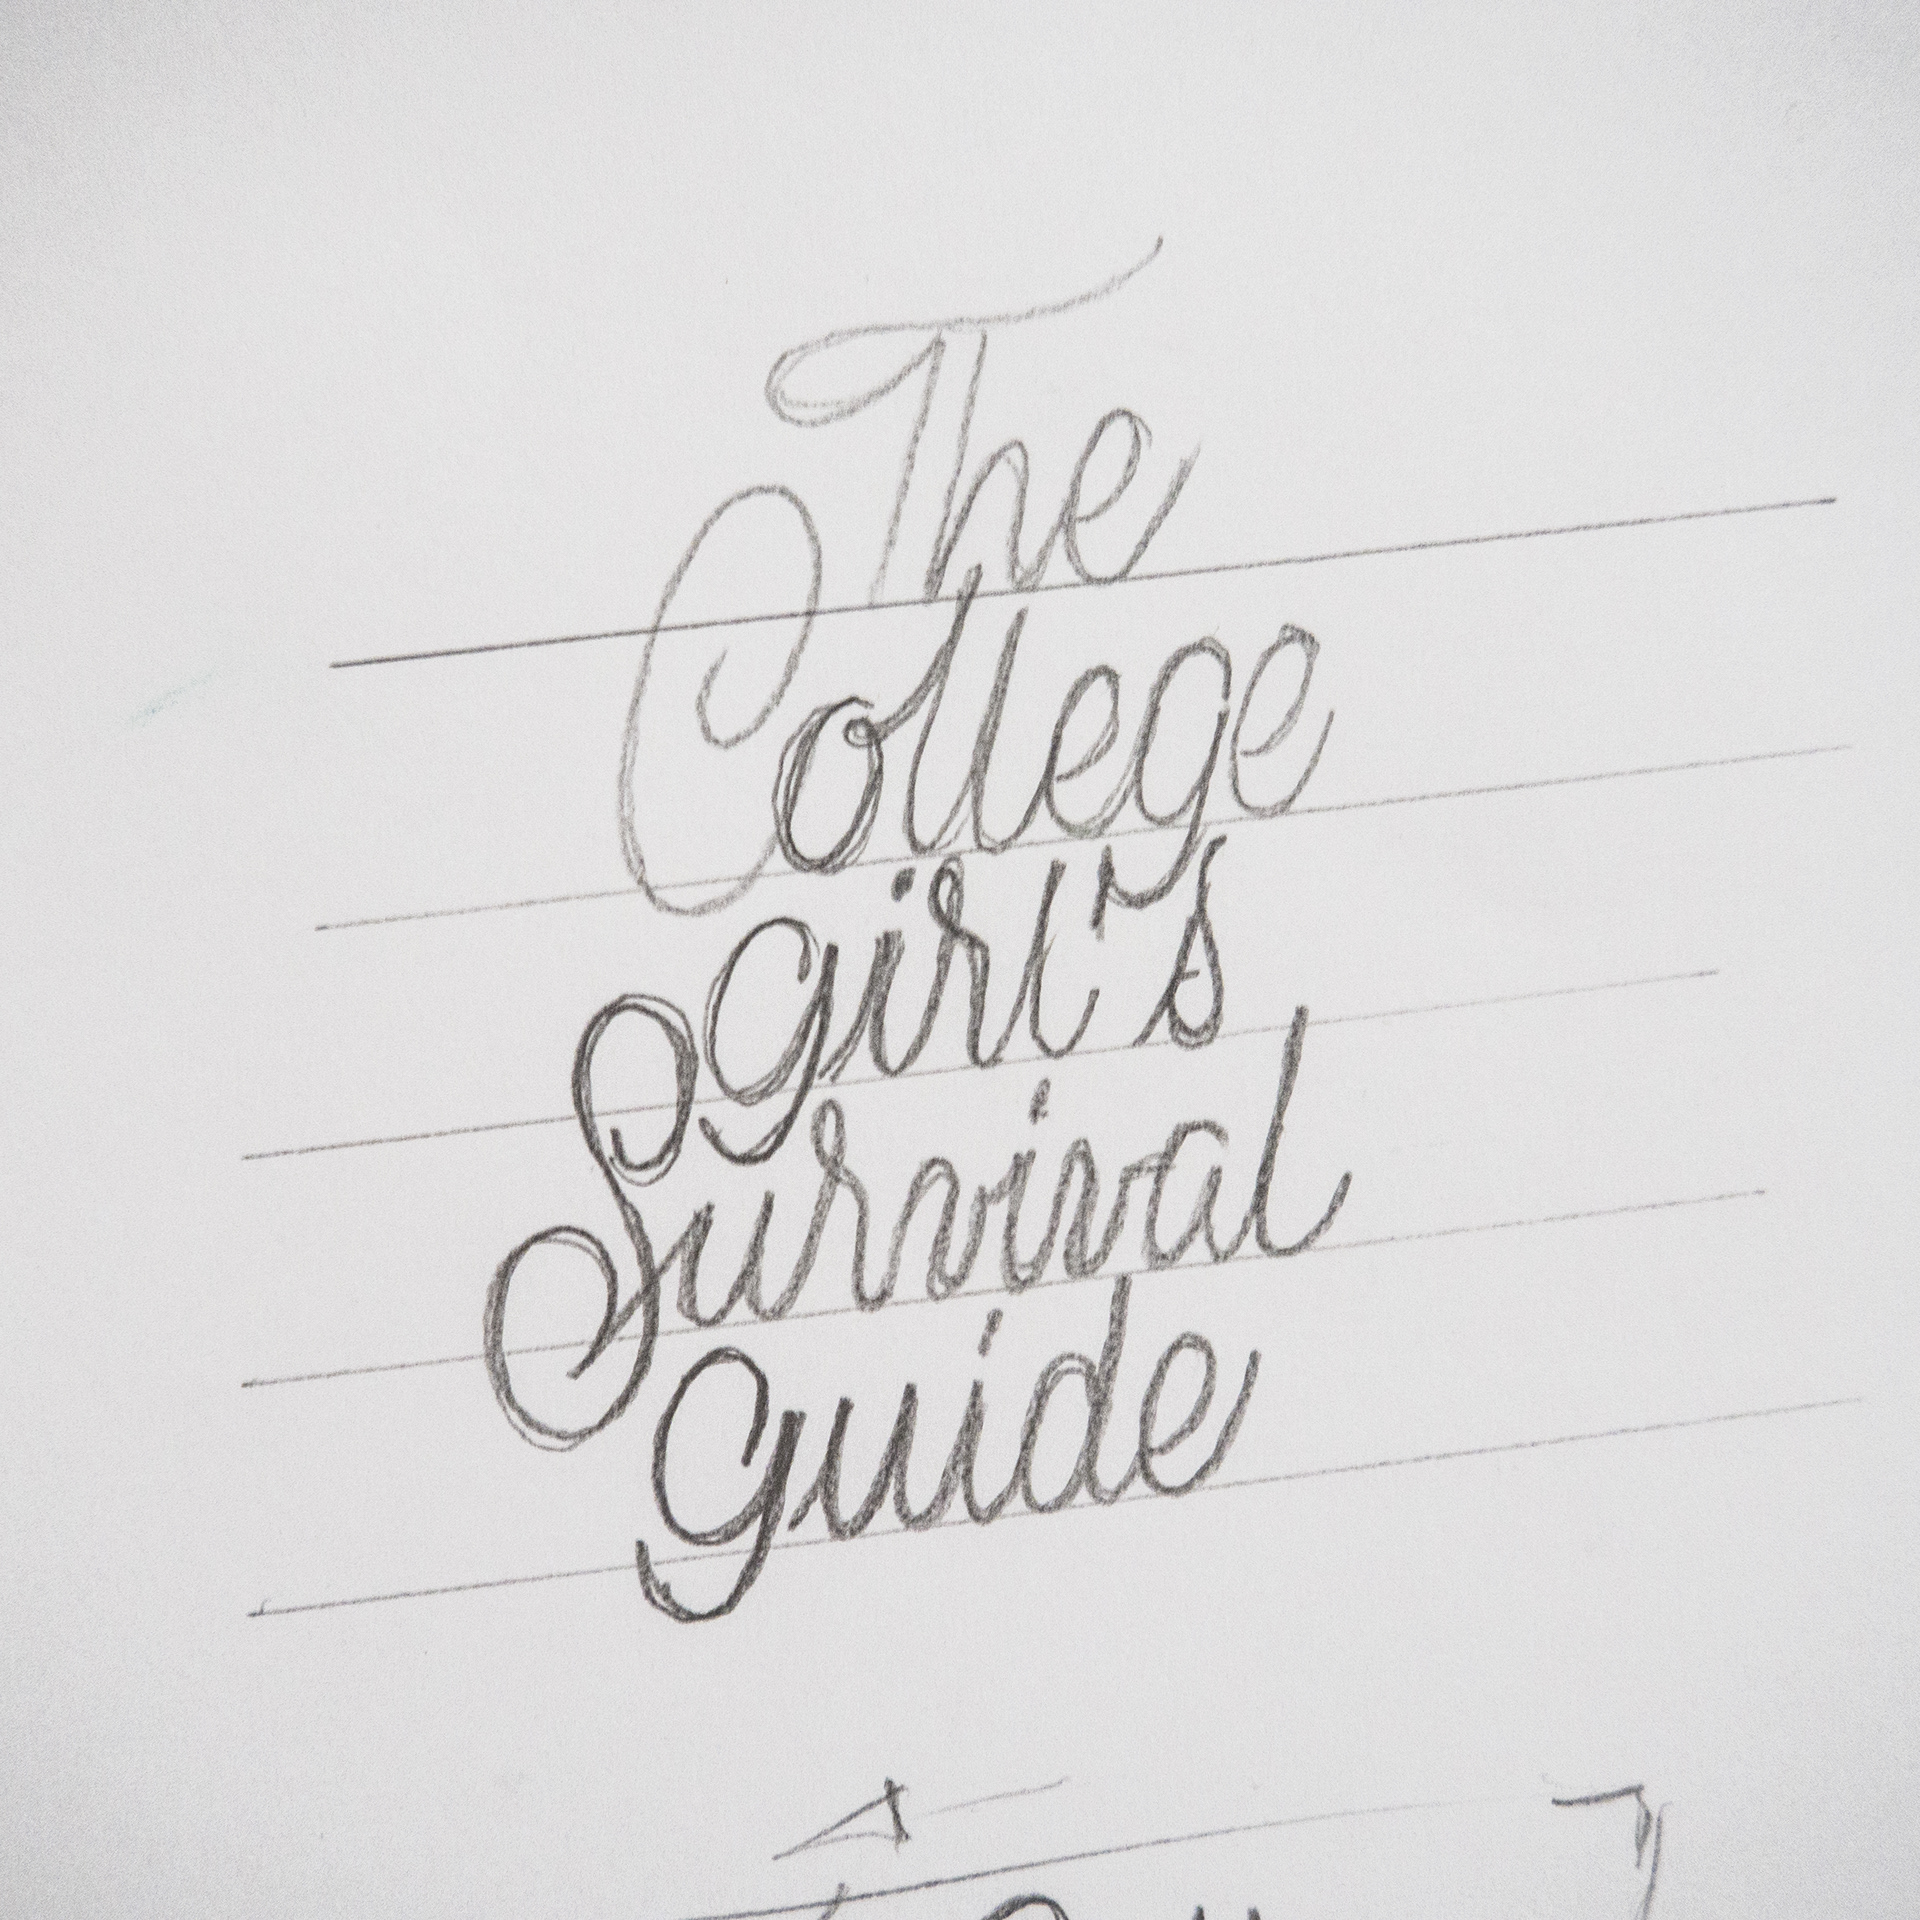 The
College
girl's
Survival
guide